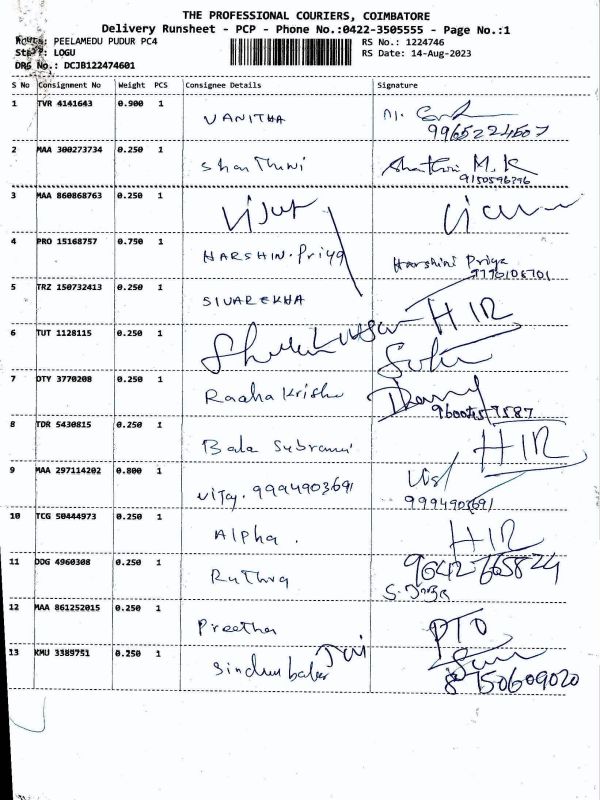 THE PROFESSIONAL COURIERS, COIMBATORE
Delivery Runsheet - PCP - Phone No.:0422-3505555 - Page No.:1
PEELAMEDU PUDUR PC4 RS No.: 1224746
LOGU RS Date: 14-Aug-2023
DRS No.: DCJB122474601
S No Consignment No Weight PCS Consignee Details Signature
1 TVR 4141643 0.900 1 VANITHA
9965224507
2 MAA 300273734 0.250 1 Shanthini M.K
9150596396
3 MAA 860868763 0.250 1
4 PRO 15168757 0.750 1 HARSHIN.Priya Harshini Priya
5 TRZ 150732413 0.250 1 SIVAREKHA HIR
6 TUT 1128115 0.250 1
7 DTY 3770208 0.250 1 Radha Krishn
8 TDR 5430815 0.250 1 Bala Subrami HIR
9 MAA 297114202 0.800 1 Vijay. 9994903691
9994903691
10 TCG 50444973 0.250 1 Alpha . HIR
11 DDG 4960308 0.250 1 Ruthra
12 MAA 861252015 0.250 1 Preetha PTO
13 KMU 3389751 0.250 1
8150609020